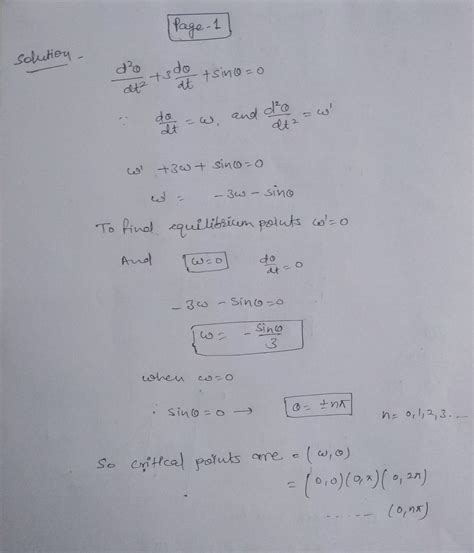 Page-1
Solution -
d²θ/dt² + 3 dθ/dt + sinθ = 0
∵ dθ/dt = ω, and d²θ/dt² = ω'
ω' + 3ω + sinθ = 0
ω' = -3ω - sinθ
To find equilibrium points ω' = 0
And ω = 0 dθ/dt = 0
-3ω - sinθ = 0
ω = - sinθ/3
when ω = 0
∴ sinθ = 0 → θ = ±nπ n = 0, 1, 2, 3. ...
So critical points are = (ω, θ)
= (0, 0) (0, π) (0, 2π)
...... (0, nπ)